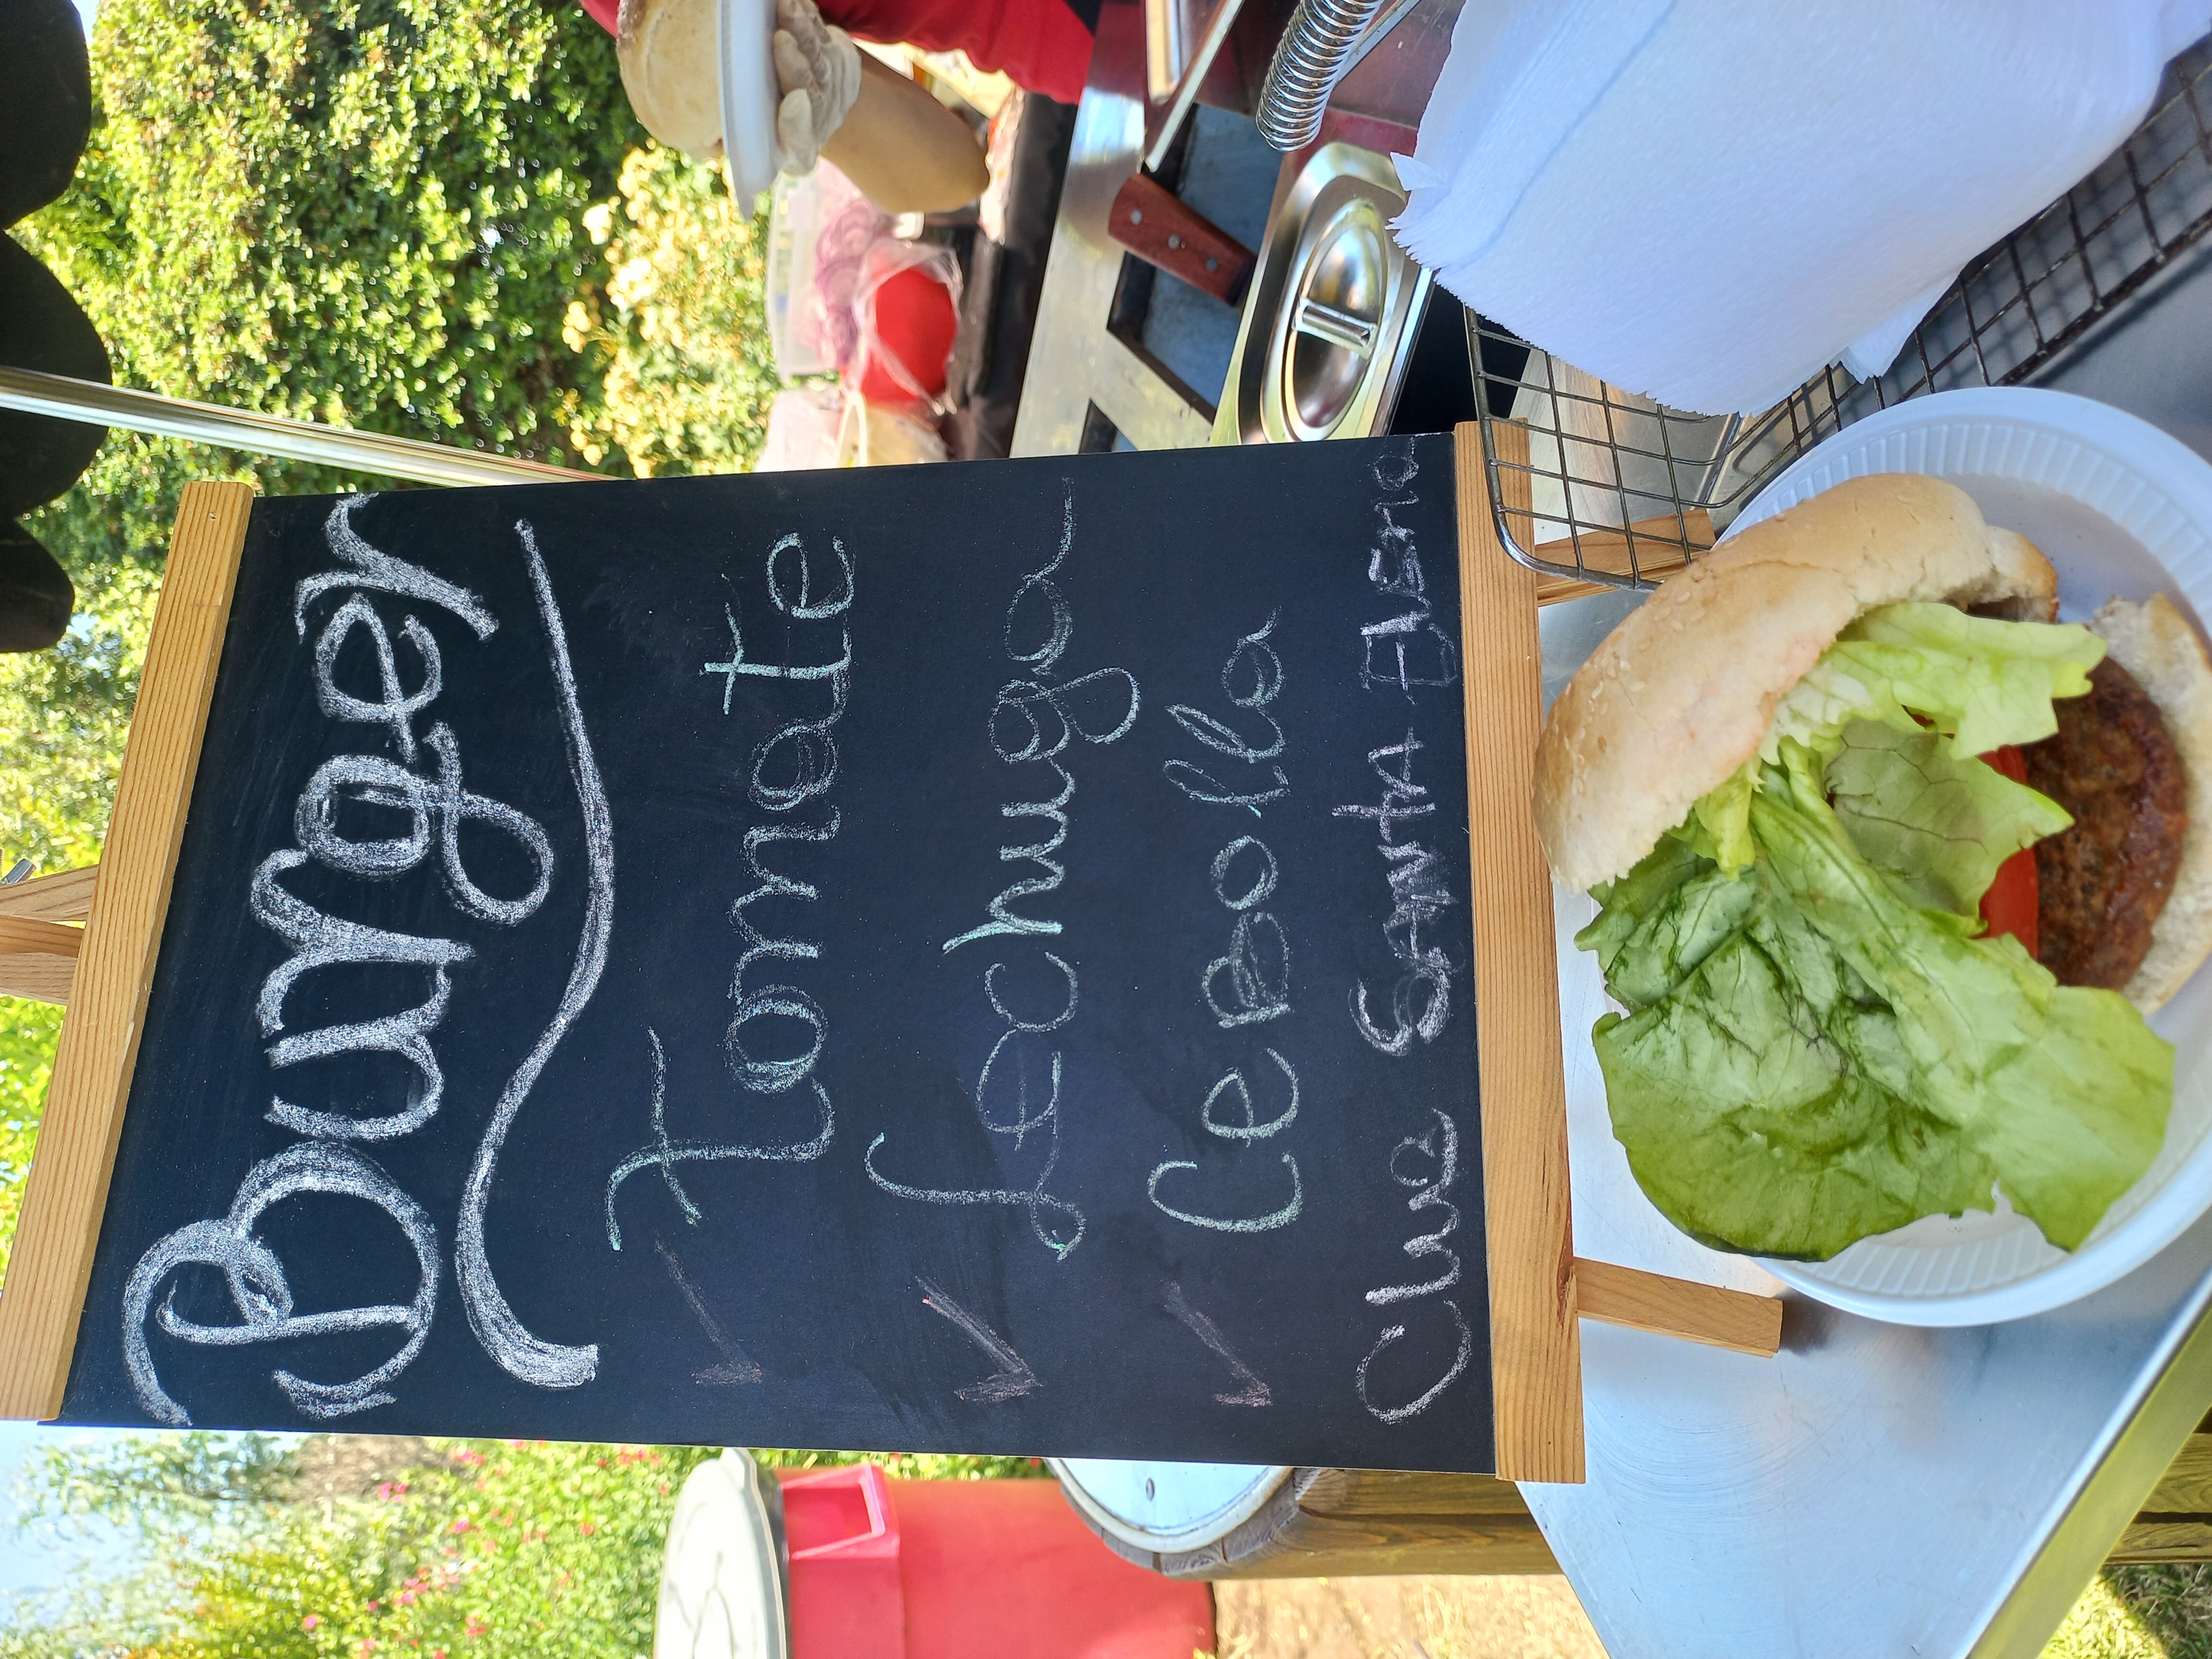 Burger
✓ Tomate
✓ Lechuga
✓ CeBolla
Club Santa Elena